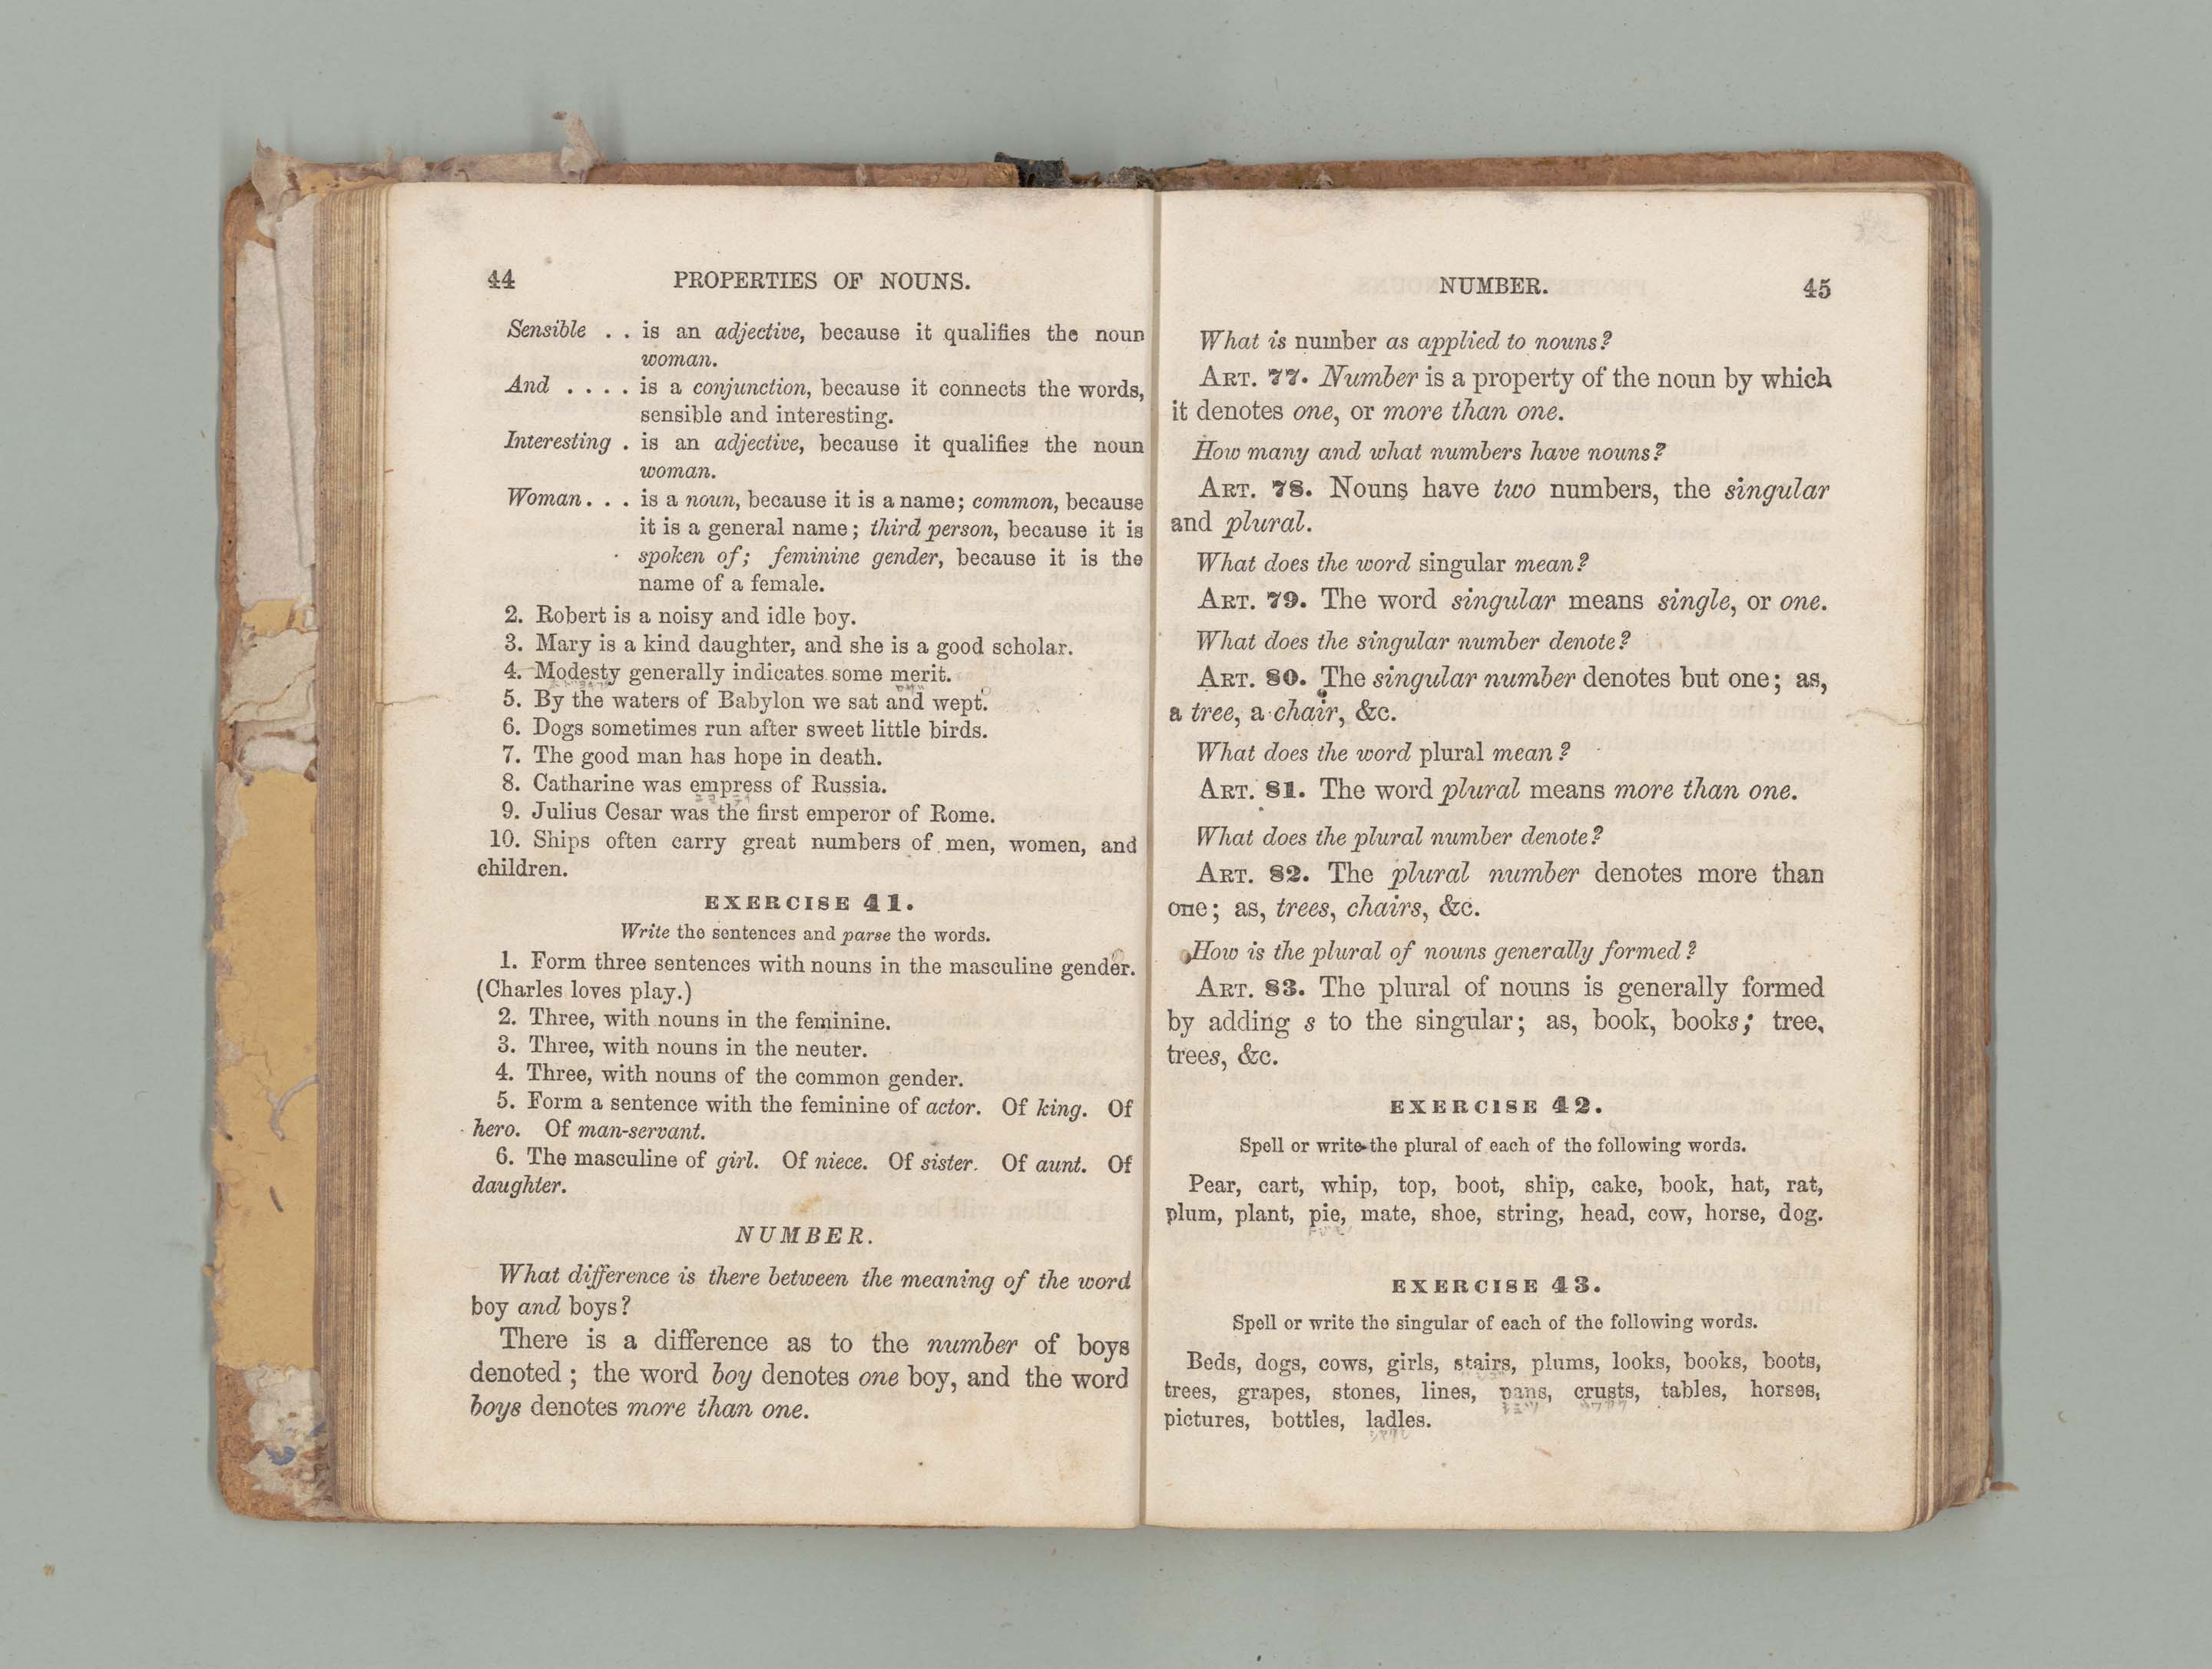 44 PROPERTIES OF NOUNS.
Sensible . . is an adjective, because it qualifies the noun
woman.
And . . . . is a conjunction, because it connects the words,
sensible and interesting.
Interesting . is an adjective, because it qualifies the noun
woman.
Woman . . . is a noun, because it is a name; common, because
it is a general name; third person, because it is
spoken of; feminine gender, because it is the
name of a female.
2. Robert is a noisy and idle boy.
3. Mary is a kind daughter, and she is a good scholar.
4. Modesty generally indicates some merit.
5. By the waters of Babylon we sat and wept.
6. Dogs sometimes run after sweet little birds.
7. The good man has hope in death.
8. Catharine was empress of Russia.
9. Julius Cesar was the first emperor of Rome.
10. Ships often carry great numbers of men, women, and
children.
EXERCISE 41.
Write the sentences and parse the words.
1. Form three sentences with nouns in the masculine gender.
(Charles loves play.)
2. Three, with nouns in the feminine.
3. Three, with nouns in the neuter.
4. Three, with nouns of the common gender.
5. Form a sentence with the feminine of actor. Of king. Of
hero. Of man-servant.
6. The masculine of girl. Of niece. Of sister. Of aunt. Of
daughter.
NUMBER.
What difference is there between the meaning of the word
boy and boys?
There is a difference as to the number of boys
denoted; the word boy denotes one boy, and the word
boys denotes more than one.
NUMBER. 45
What is number as applied to nouns?
ART. 77. Number is a property of the noun by which
it denotes one, or more than one.
How many and what numbers have nouns?
ART. 78. Nouns have two numbers, the singular
and plural.
What does the word singular mean?
ART. 79. The word singular means single, or one.
What does the singular number denote?
ART. 80. The singular number denotes but one; as,
a tree, a chair, &c.
What does the word plural mean?
ART. 81. The word plural means more than one.
What does the plural number denote?
ART. 82. The plural number denotes more than
one; as, trees, chairs, &c.
How is the plural of nouns generally formed?
ART. 83. The plural of nouns is generally formed
by adding s to the singular; as, book, books; tree,
trees, &c.
EXERCISE 42.
Spell or write the plural of each of the following words.
Pear, cart, whip, top, boot, ship, cake, book, hat, rat,
plum, plant, pie, mate, shoe, string, head, cow, horse, dog.
EXERCISE 43.
Spell or write the singular of each of the following words.
Beds, dogs, cows, girls, stairs, plums, looks, books, boots,
trees, grapes, stones, lines, pans, crusts, tables, horses,
pictures, bottles, ladles.